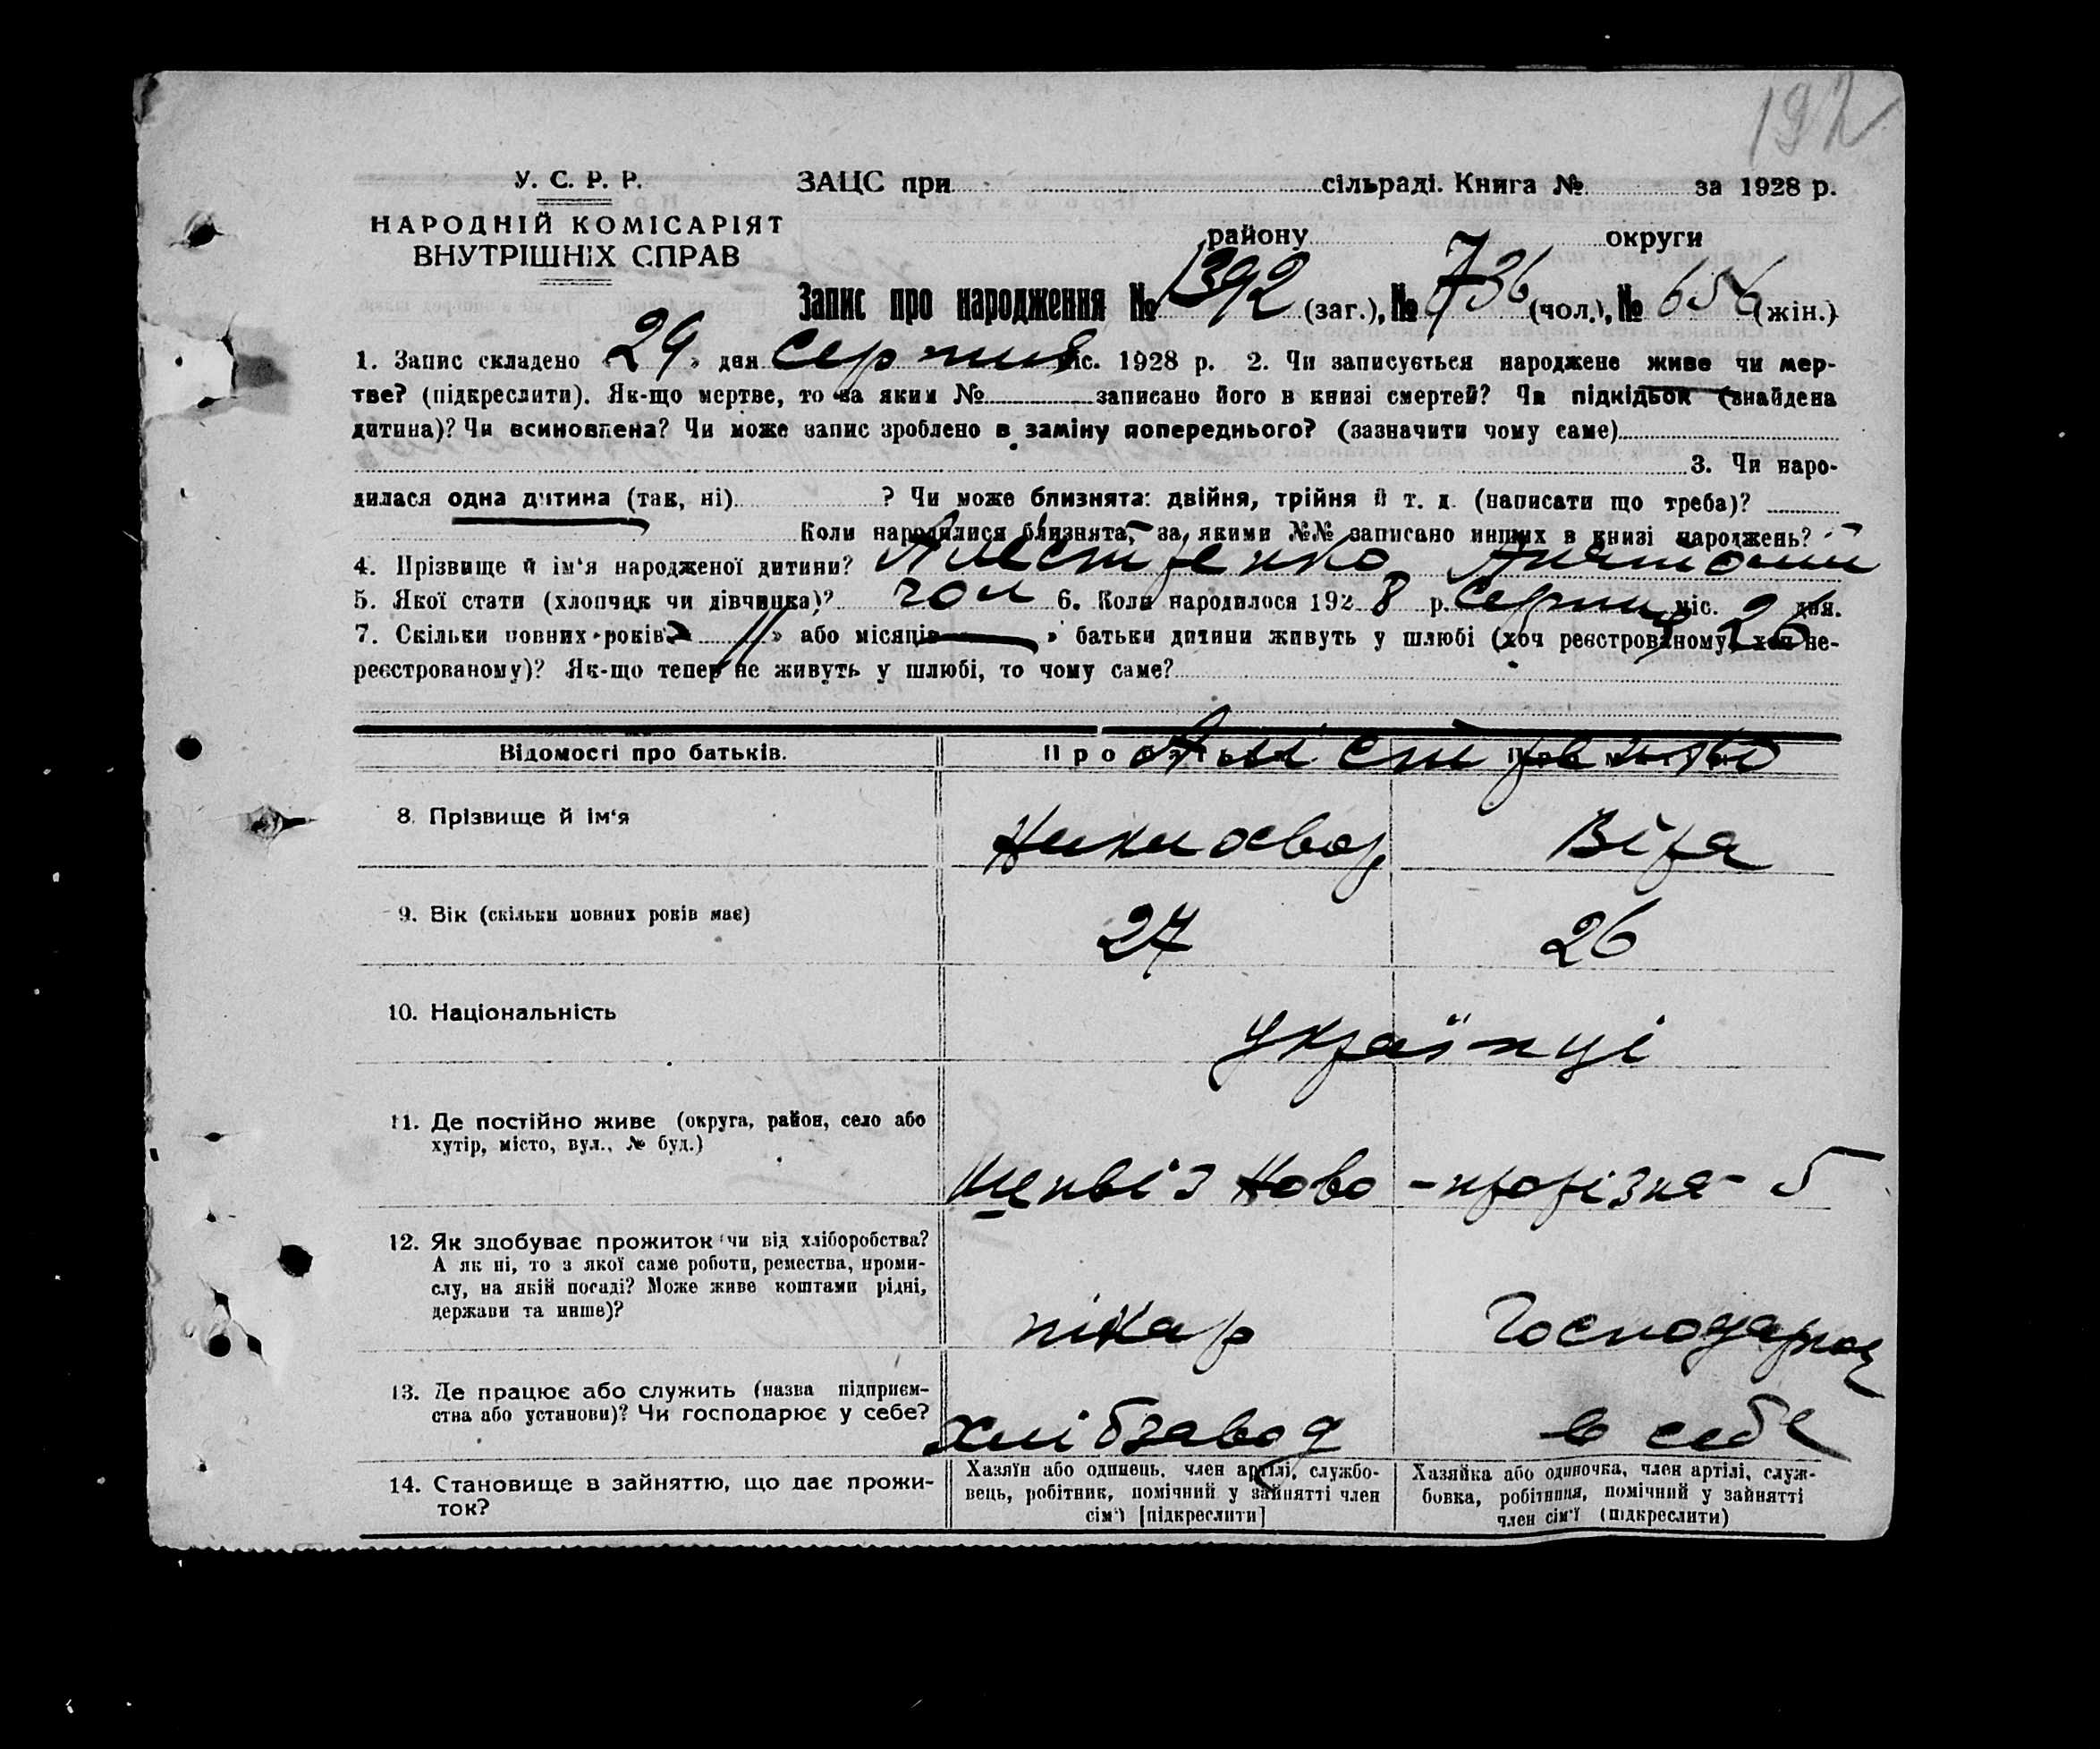 192
У. С. Р. Р.
НАРОДНІЙ КОМІСАРІЯТ
ВНУТРІШНІХ СПРАВ
ЗАЦС при сільраді. Книга № за 1928 р.
району округи
Запис про народження № 1392 (заг.), № 736 (чол.), № 656 (жін.)
1. Запис складено « 29 » дня серпня міс. 1928 р. 2. Чи записується народжене живе чи мер-
тве? (підкреслити). Як-що мертве, то за яким № записано його в книзі смертей? Чи підкідьок (знайдена
дитина)? Чи всиновлена? Чи може запис зроблено в заміну попереднього? (зазначити чому саме)
3. Чи наро-
дилася одна дитина (так, ні) ? Чи може близнята: двійня, трійня й т. д. (написати що треба)?
Коли народилися близнята, за якими №№ записано инших в книзі народжень? -
4. Прізвище й ім‘я народженої дитини? Анатолий
5. Якої стати (хлопчик чи дівчинка)? чол 6. Коли народилося 1928 р. серпня міс. 26 дня.
7. Скільки повних років » або місяців » батьки дитини живуть у шлюбі (хоч реєстрованому, хоч не-
реєстрованому)? Як-що тепер не живуть у шлюбі, то чому саме?
Відомості про батьків.
8. Прізвище й ім‘я Віра
9. Вік (скільки повних років має) 27 26
10. Національність українці
11. Де постійно живе (округа, район, село або
хутір, місто, вул., № буд.)
Ново -прорізна- 5
12. Як здобуває прожиток чи від хліборобства?
А як ні, то з якої саме роботи, ремества, проми-
слу, на якій посаді? Може живе коштами рідні,
держави та инше)?
пікар
13. Де працює або служить (назва підприєм-
ства або установи)? Чи господарює у себе?
хлібзавод в себе
14. Становище в зайняттю, що дає прожи-
ток?
Хазяїн або одинець, член артілі, службо-
вець, робітник, помічний у зайнятті член
сім‘ї [підкреслити]
Хазяйка або одиночка, член артілі, служ-
бовка, робітниця, помічний у зайнятті
член сім‘ї (підкреслити)